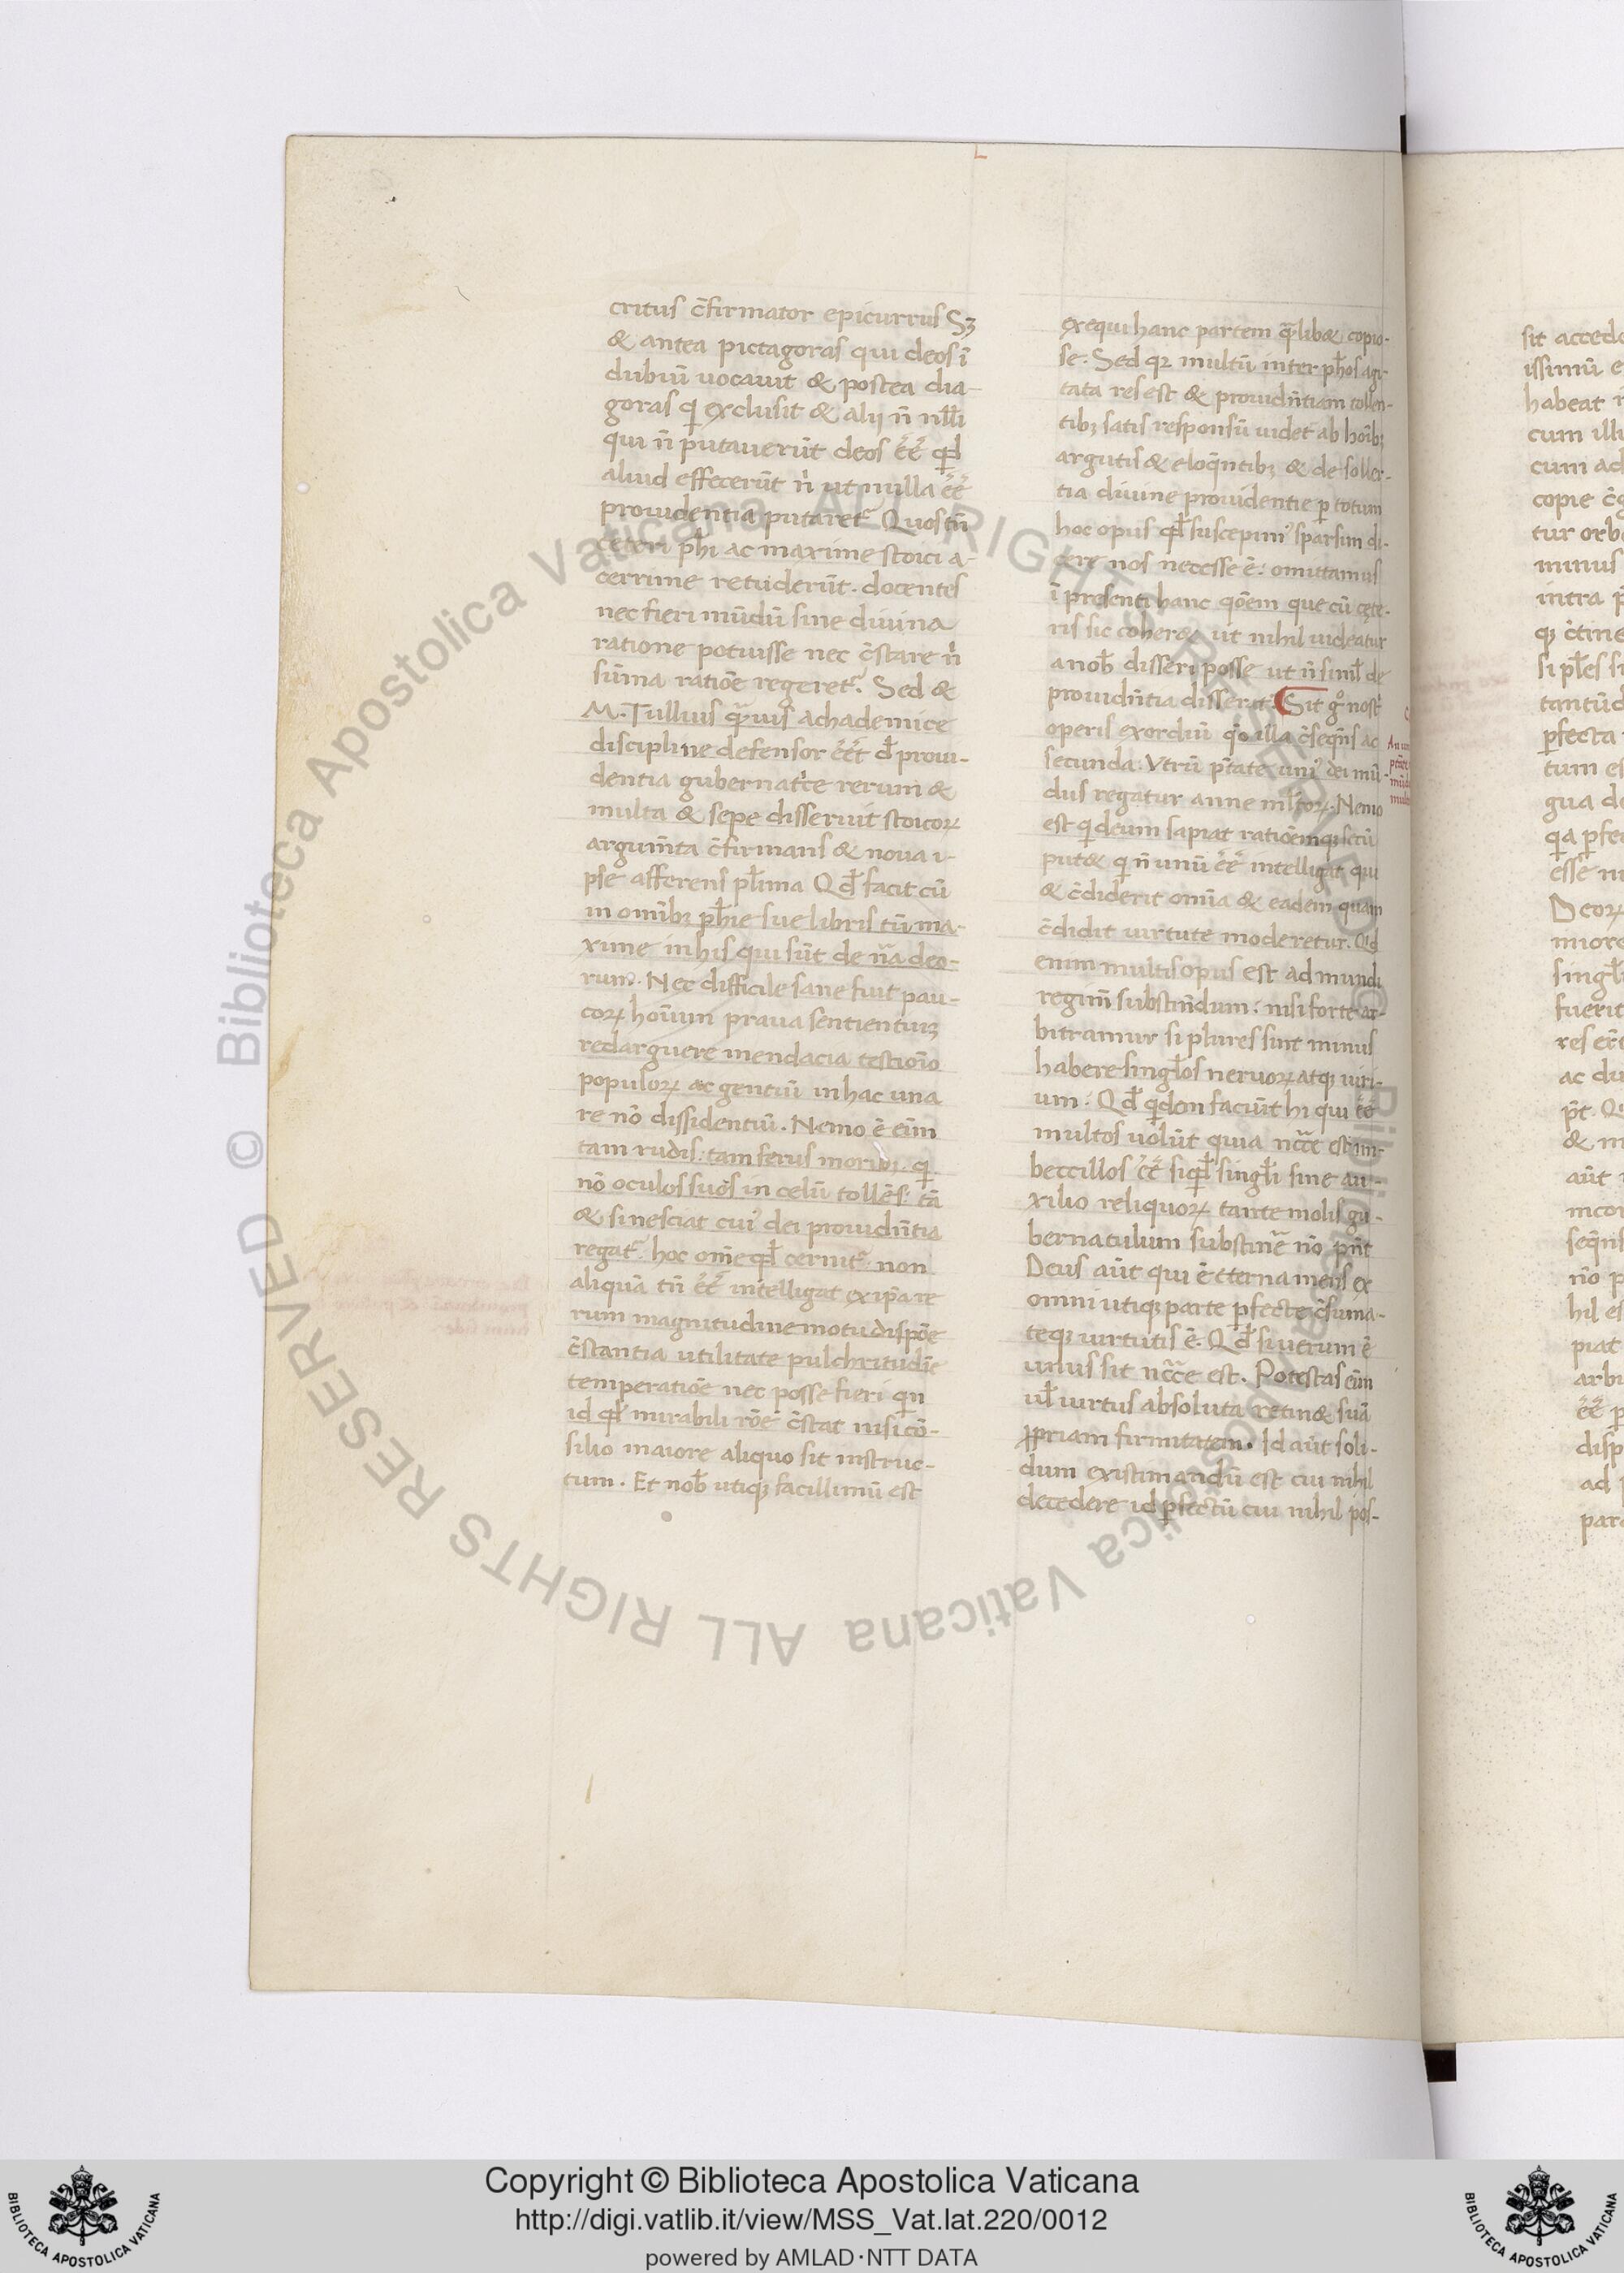 critus c̄firmator epicurrus Sꝫ
& antea pictagoras qui deos ī
dubiū uocauit & postea dia-
goras qͥ exclusit & alij n̄ nll̄i
qui n̄ putauerūt deos ēē qd̄
aliud effecerūt nͥ ut nulla ēē
prouidentia putaret᷑ Quos tn̄
ceteri ph̄i ac maxime stoici a-
cerrime retuderūt. docentes
nec fieri mūdū sine diuina
ratione potuisse nec c̄stare nͥ
sūma ratiōe regeret᷑. Sed &
M. Tullius qͣuis achademice
discipline defensor ēēt d̄ proui-
dentia gubernatͥce rerum &
multa & sepe disseruit stoicoꝝ
argum̄ta c̄firmans & noua i-
pse afferens pl̄ima Qd̄ facit cū
in omībꝫ ph̄ie sue libris tū ma-
xime in his qui sūt de nā deo-
rum. Nec difficile sane fuit pau-
coꝝ hoīum praua sentientiuꝫ
redarguere mendacia testiōio
populoꝝ ac gentiū in hac una
re nō dissidentiū. Nemo ē eīm
tam rudis: tam ferus moribꝫ. qͥ
nō oculos suos in celū tollēs: tā
& si nesciat cuiꝰ dei prouidn̄tia
regat᷑ hoc om̄e qd̄ cernit᷑: non
aliquā tn̄ ēē intelligat ex ip̄a re
rum magnitudine motu dispōe
c̄stantia utilitate pulchritudīe
temperatiōe nec posse fieri qͥn
id qd̄ mirabili rōe c̄stat nisi cō-
silio maiore aliquo sit instruc-
tum. Et nob̄ utiqꝫ facillimū est
exequi hanc partem qͣmlib& copio-
se. Sed qꝛ multū inter ph̄os agi-
tata res est & prouidn̄tiam tollen-
tibꝫ satis responsū uidet᷑ ab hoībꝫ
argutis & eloqn̄tibꝫ & de soller-
tia diuine prouidentie ꝑ totum
hoc opus qd̄ suscepimꝰ sparsim di-
cere nos necesse ē: omittamus
ī presenti hanc qōem que cū cęte-
ris sic coher& ut nihil uideatur
a nob̄ disseri posse ut n̄ simł de
prouidn̄tia disserat᷑. Sit gͦ nostͥ
operis exordiū qō illa c̄seqn̄s ac
secunda. Vtrū ptāte uniꝰ dei mū-
dus regatur anne mltoꝝ. Nemo
est qͥ deum sapiat ratiōemqꝫ secū
put& qͥ n̄ unū ēē intelligat qui
& c̄diderit omīa & eadem quam
c̄didit uirtute moderetur. Qͥd
enim multis opus est ad mundi
regim̄ substin̄dum: nisi forte ar-
bitramur si plures sint minus
habere singłos neruoꝝ atqꝫ uiri-
um: Qd̄ qͥdem faciūt hi qui ēē
multos uolūt quia nccͣe est im-
beccillos ēē siqͥd̄ singłi sine au-
xilio reliquoꝝ tante molis gu-
bernaculum substinē nō pn̄t
Deus aūt qui ē eterna mens ex
omni utiqꝫ parte ꝑfecte c̄suma-
teqꝫ uirtutis ē. Qd̄ si uerum ē
unus sit nccͣe est. Potestas eīm
uł uirtus absoluta retin& suā
ꝓpriam firmitatem. Id aūt soli-
dum existimandū est cui nihil
decedere id ꝑfectū cui nihil pos-
Copyright © Biblioteca Apostolica Vaticana
http://digi.vatlib.it/view/MSS_Vat.lat.220/0012
powered by AMLAD·NTT DATA
BIBLIOTECA APOSTOLICA VATICANA
BIBLIOTECA APOSTOLICA VATICANA
© Biblioteca Apostolica Vaticana ALL RIGHTS RESERVED
© Biblioteca Apostolica Vaticana ALL RIGHTS RESERVED